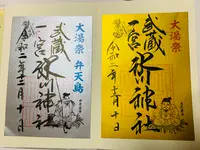 大湯祭 弁天島
武蔵
一宮
氷川神社
令和二年十二月十日
大湯祭
武蔵
一宮
氷川神社
令和二年十二月十日